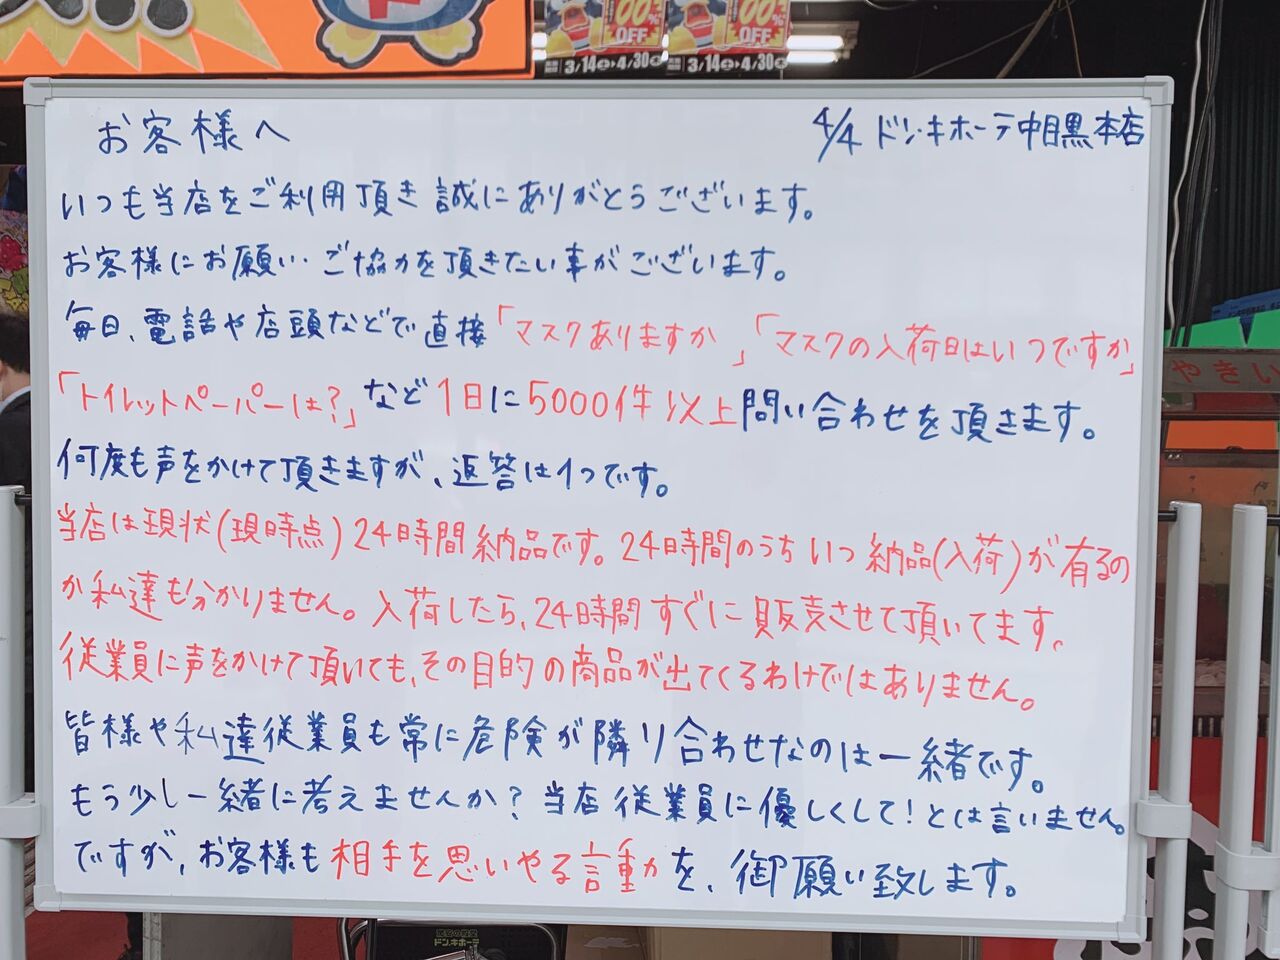 00% OFF
00% OFF
3/14 4/30
3/14 4/30
お客様へ
4/4 ドン・キホーテ中目黒本店
いつも当店をご利用頂き誠にありがとうございます。
お客様にお願い・ご協力を頂きたい事がございます。
毎日、電話や店頭などで直接「マスクありますか」「マスクの入荷日はいつですか」
「トイレットペーパーは?」など1日に5000件以上問い合わせを頂きます。
何度も声をかけて頂きますが、返答は1つです。
当店は現状(現時点)24時間納品です。24時間のうちいつ納品(入荷)が有るの
か私達も分かりません。入荷したら、24時間すぐに販売させて頂いてます。
従業員に声をかけて頂いても、その目的の商品が出てくるわけではありません。
皆様や私達従業員も常に危険が隣り合わせなのは一緒です。
もう少し一緒に考えませんか?当店従業員に優しくして!とは言いません。
ですが、お客様も相手を思いやる言動を、御願い致します。
やきい
ドン・キホーテ